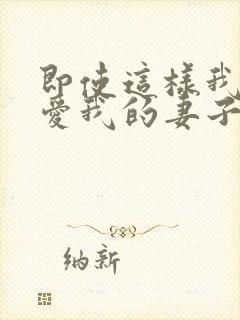 即使這樣我
愛我的妻子
纳新